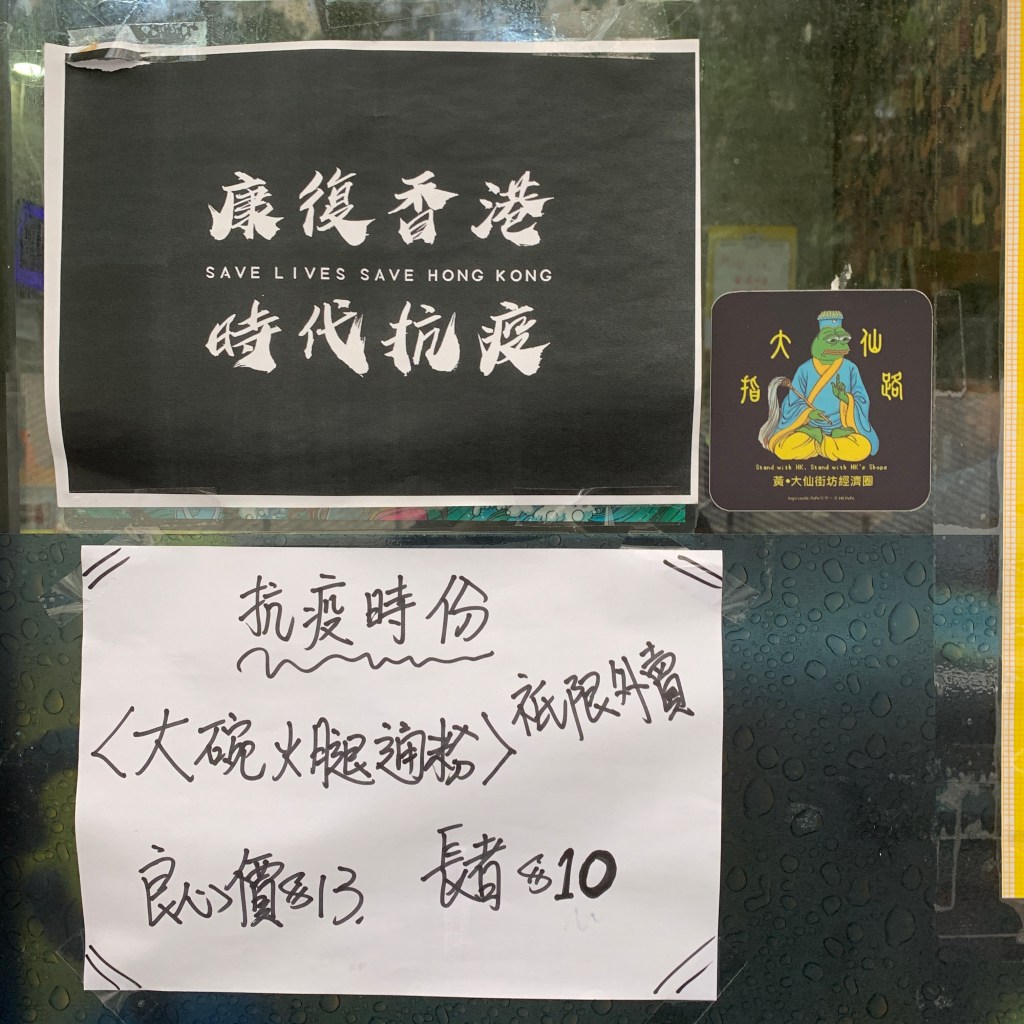 康復香港
SAVE LIVES SAVE HONG KONG
時代抗疫
大仙
指路
Stand with HK, Stand with HK's Shops
黃•大仙街坊經濟圈
抗疫時份
〈大碗火腿通粉〉祇限外賣
良心價$13.
長者$10